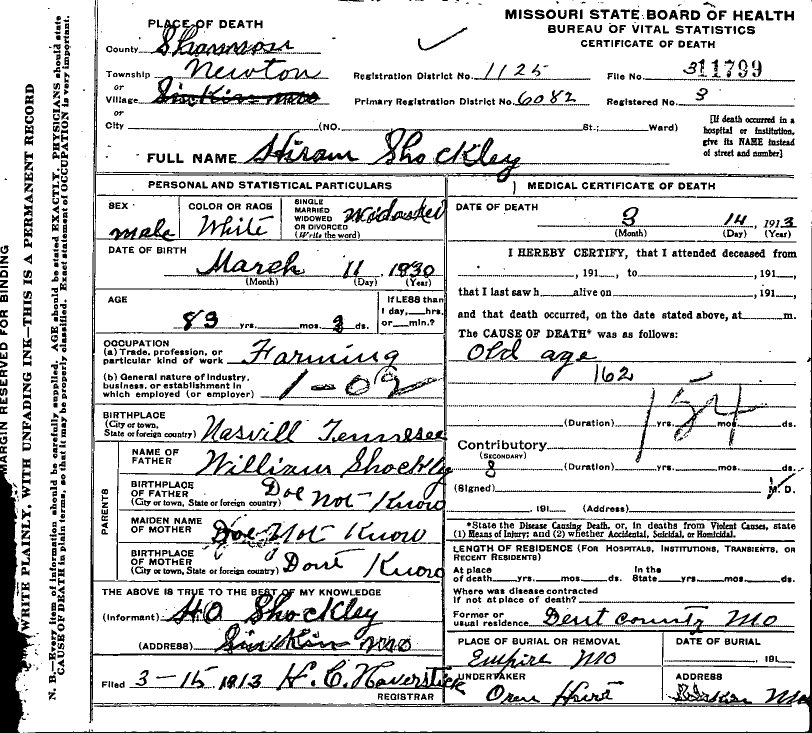 MISSOURI STATE BOARD OF HEALTH
BUREAU OF VITAL STATISTICS
CERTIFICATE OF DEATH
PLACE OF DEATH
County Shannon
Township Newton
or
Village Sinkin mo
or
City (NO. St.; Ward)
Registration District No. 1125
File No. 11799
Primary Registration District No. 6082
Registered No. 3
[If death occurred in a
hospital or institution,
give its NAME instead
of street and number]
FULL NAME Hiram Shockley
PERSONAL AND STATISTICAL PARTICULARS
SEX male
COLOR OR RACE White
SINGLE
MARRIED
WIDOWED
OR DIVORCED
(Write the word)
DATE OF BIRTH
March 11, 1830
(Month) (Day) (Year)
AGE
83 yrs. mos. 3 ds.
If LESS than
1 day, hrs.
or min.?
OCCUPATION
(a) Trade, profession, or
particular kind of work Farming
(b) General nature of industry,
business, or establishment in
which employed (or employer)
1-09
BIRTHPLACE
(City or town,
State or foreign country) Nasvill Tennesee
PARENTS
NAME OF
FATHER William Shockly
BIRTHPLACE
OF FATHER
(City or town, State or foreign country) Doe not Know
MAIDEN NAME
OF MOTHER Doe Not Know
BIRTHPLACE
OF MOTHER
(City or town, State or foreign country) Dont Know
THE ABOVE IS TRUE TO THE BEST OF MY KNOWLEDGE
(Informant) HO Shockley
(ADDRESS) Sinkin mo
Filed 3-15 1913 H. C. Haverstick
REGISTRAR
MEDICAL CERTIFICATE OF DEATH
DATE OF DEATH
3 14, 1913
(Month) (Day) (Year)
I HEREBY CERTIFY, that I attended deceased from
, 191 , to , 191 ,
that I last saw h alive on , 191 ,
and that death occurred, on the date stated above, at m.
The CAUSE OF DEATH* was as follows:
Old age
162
154
(Duration) yrs. mos. ds.
Contributory
(SECONDARY)
(Duration) yrs. mos. ds.
(Signed) M. D.
, 191 (Address)
*State the Disease Causing Death, or, in deaths from Violent Causes, state
(1) Means of Injury; and (2) whether Accidental, Suicidal, or Homicidal.
LENGTH OF RESIDENCE (For Hospitals, Institutions, Transients, or
Recent Residents)
At place
of death yrs. mos. ds.
In the
State yrs. mos. ds.
Where was disease contracted
if not at place of death?
Former or
usual residence Dent county Mo
PLACE OF BURIAL OR REMOVAL
Empire MO
DATE OF BURIAL
, 191
UNDERTAKER
Oren
ADDRESS
Mo
MARGIN RESERVED FOR BINDING
WRITE PLAINLY, WITH UNFADING INK—THIS IS A PERMANENT RECORD
N. B.—Every item of information should be carefully supplied. AGE should be stated EXACTLY. PHYSICIANS should state
CAUSE OF DEATH in plain terms, so that it may be properly classified. Exact statement of OCCUPATION is very important.